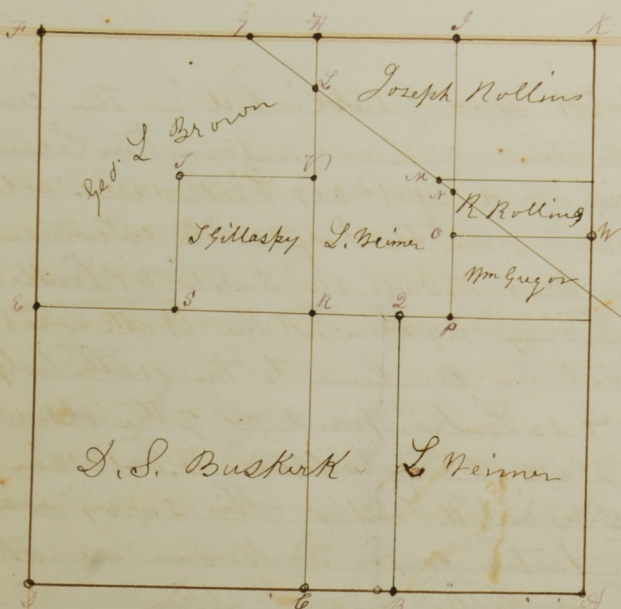 F
H
I
K
L
Joseph Rollins
Geo. L Brown
M
N
R Rollins
O
W
T Gillaspy
L. Weimer
Wm Gregor
E
S
R
Q
P
D. S. Buskirk
L Weimer
D
C
B